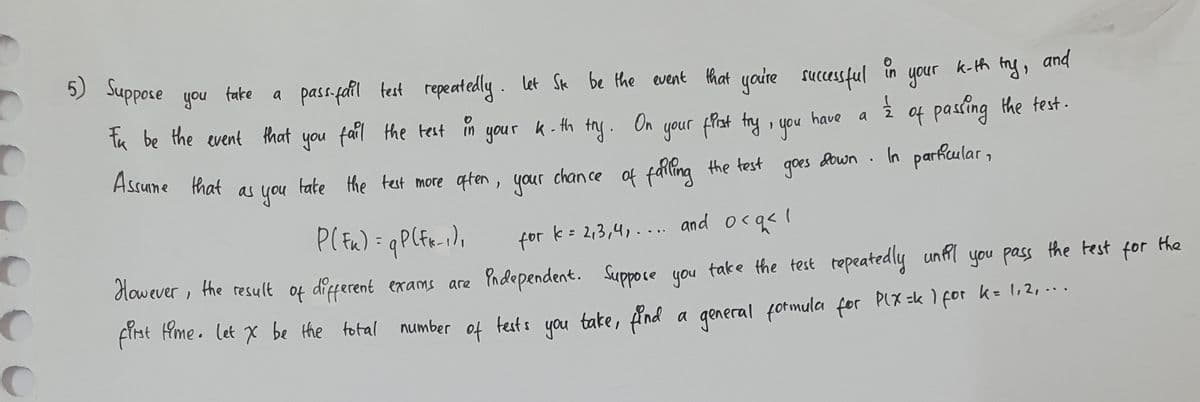 5) Suppose you take a pass-fail test repeatedly. let Sk be the event that you're successful in your k-th try, and
Fk be the event that you fail the test in your k-th try. On your first try, you have a 1/2 of passing the test.
Assume that as you take the test more often, your chance of failing the test goes down. In particular,
P(Fk) = qP(Fk-1), for k = 2,3,4,.... and 0<q<1
However, the result of different exams are independent. Suppose you take the test repeatedly until you pass the test for the
first time. let X be the total number of tests you take, find a general formula for P(X=k) for k= 1,2,...